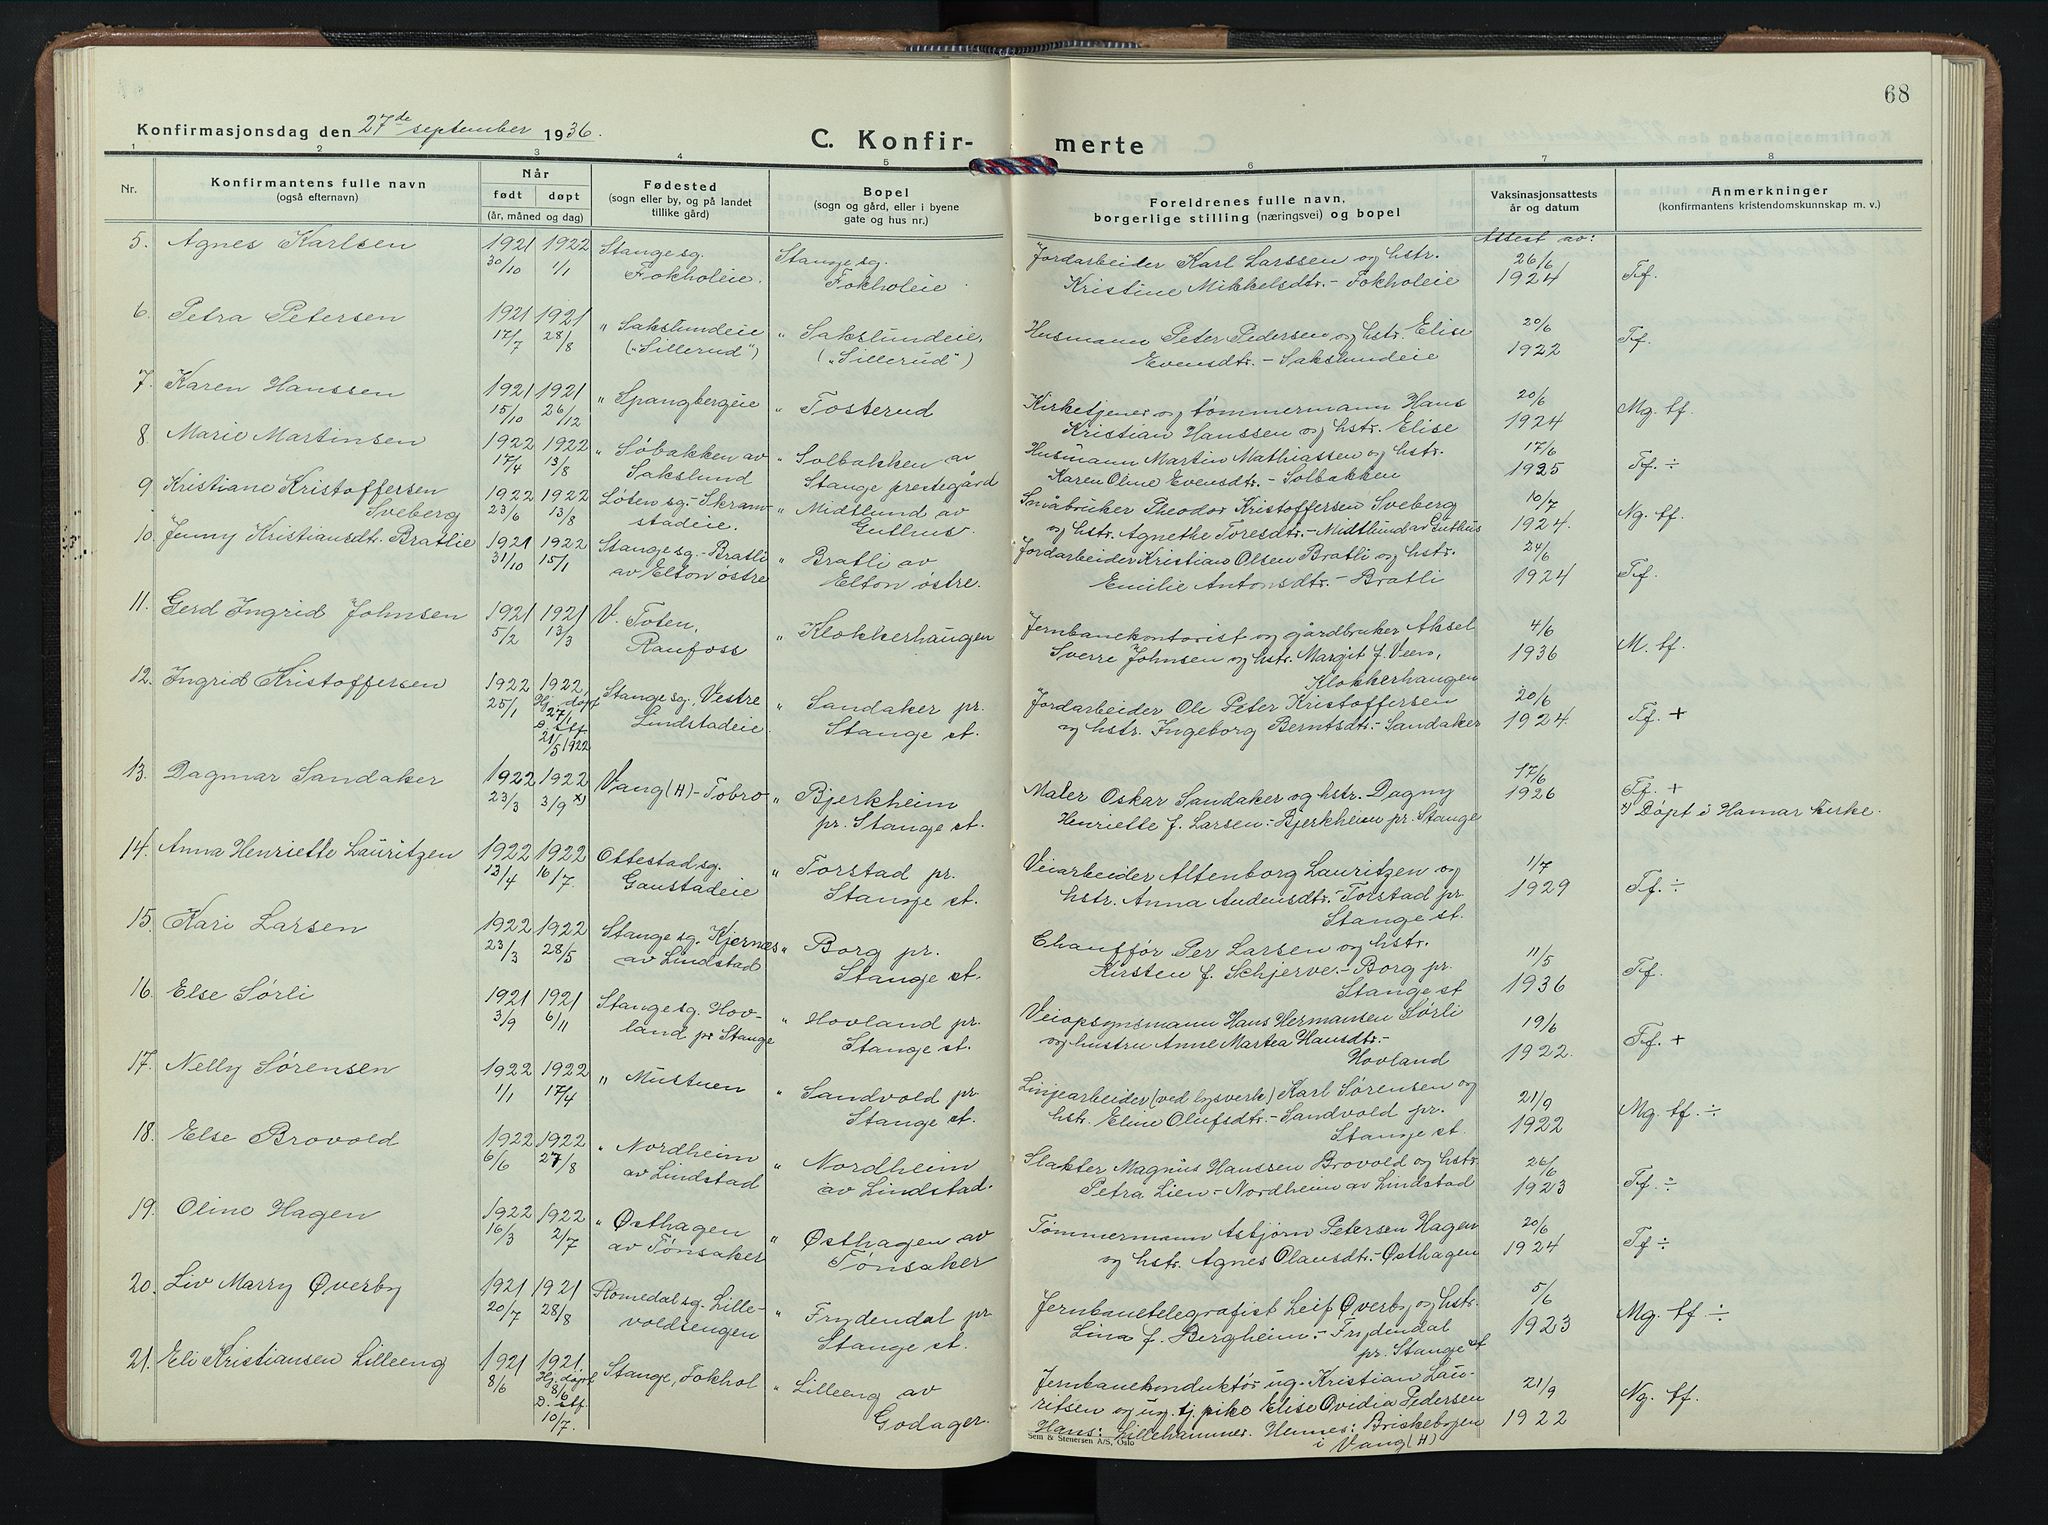 68
Konfirmasjonsdag den 27de september 1936.
C. Konfir-
merte
1 2 3 4 5 6 7 8
Nr.
Konfirmantens fulle navn
(også efternavn)
Når
født døpt
(år, måned og dag)
Fødested
(sogn eller by, og på landet
tillike gård)
Bopel
(sogn og gård, eller i byene
gate og hus nr.)
Foreldrenes fulle navn,
borgerlige stilling (næringsvei) og bopel
Vaksinasjonsattests
år og datum
Anmerkninger
(konfirmantens kristendomskunnskap m. v.)
Attest av:
5. Agnes Karlsen 1921 1922 Stange sg. Stange sg. Jordarbeider Karl Larssen og hstr. 26/6
30/10 1/1 Fokholeie. Fokholeie. Kristine Mikkelsdtr. - Fokholeie 1924 Tf.
6. Petra Petersen 1921 1921 " Sakslundeie " Sakslundeie, Husmann Peter Pedersen og hstr. Elise 20/6
17/7 28/8 („Sillerud") („Sillerud") Evensdtr. - Sakslundeie 1922 Tf.
7. Karen Hanssen 1921 1921 " Spangbergeie " Tosterud Kirketjener og tømmermann Hans 20/6
15/10 26/12 Kristian Hanssen og hstr. Elise 1924 Mg. tf.
8. Marie Martinsen 1922 1922 " Søbakken av " Solbakken av Husmann Martin Mathiassen og hstr. 17/6
17/4 13/8 Sakslund Stange prestegård Karen Oline Evensdtr. - Solbakken 1925 Tf. ÷
9. Kristiane Kristoffersen 1922 1922 Løten sg. - Skram- " Midtlund av Småbruker Theodor Kristoffersen Sveberg 10/7
Sveberg 23/6 13/8 stadeie. Guthus. og hstr. Agnethe Toresdtr. - Midtlund av Guthus 1924. Ng. tf.
10. Jenny Kristiansdt. Bratlie 1921 1922 Stange sg. - Bratli " Bratli av Jordarbeider Kristian Olsen Bratli og hstr. 24/6
31/10 15/1 av Elton østre Elton østre. Emilie Antonsdtr. - Bratli 1924 Tf.
11. Gerd Ingrid Johnsen 1921 1921 V. Toten, " Klokkerhaugen Jernbanekontorist og gårdbruker Aksel 4/6
5/2 13/3 Raufoss Sverre Johnsen og hstr. Margit f. Veen, 1936 M. tf.
Klokkerhaugen
12. Ingrid Kristoffersen 1922 1922 Stange sg., Vestre " Sandaker pr. Jordarbeider Ole Peter Kristoffersen 20/6
25/1 Hj. døpt 27/1 Lindstadeie. Stange st. og hstr. Ingeborg Berntsdtr. - Sandaker 1924. Tf. +
D. stf.
21/5 1922
13. Dagmar Sandaker 1922 1922 Vang (H) - Tobro " Bjerkheim Maler Oskar Sandaker og hstr. Dagny 17/6 1926 Tf. +
23/3 3/9 x) pr. Stange st. Henriette f. Larsen. - Bjerkheim pr. Stange x) Døpt i Hamar kirke.
14. Anna Henriette Lauritzen 1922 1922 Ottestad sg. " Torstad pr. Veiarbeider Altenborg Lauritzen og 1/7
13/4 16/7. Gaustadeie Stange st. hstr. Anna Audensdtr. - Torstad pr. 1929 Tf. ÷
Stange st.
15. Kari Larsen 1922 1922 Stange sg. Kjernæs " Borg pr. Chauffør Per Larsen og hstr. 11/5
23/3 28/5 av Lindstad Stange st. Kirsten f. Schjerve. - Borg pr. 1936 Tf.
Stange st
16. Else Sørli 1921 1921 Stange sg. Hov- " Hovland pr. Veiopsynsmann Hans Hermansen Sørli 19/6
3/9 6/11 land pr Stange Stange st. og hustru Anne Martea Hansdtr. - 1922. Tf. +
Hovland
17. Nelly Sørensen 1922 1922 " Mustuen " Sandvold pr. Linjearbeider (ved lysverk) Karl Sørensen og 21/9
1/1 17/4 Stange st. hstr. Eline Olufsdtr. - Sandvold pr. 1922 Mg. tf. ÷
Stange st.
18. Else Brovold 1922 1922 " Nordheim " Nordheim Slakter Magnus Hanssen Brovold og hstr. 26/6
6/6 27/8 av Lindstad av Lindstad. Petra Lien. - Nordheim av Lindstad 1923 Tf. ÷
19. Oline Hagen 1922 1922 " Østhagen " Østhagen av Tømmermann Asbjørn Petersen Hagen 20/6
16/3 2/7 av Tønsaker Tønsaker og hstr. Agnes Olausdtr. - Østhagen 1924 Tf ÷
20. Liv Marry Øverby 1921 1921 Romedal sg. Lille- " Frydendal pr Jernbanetelegrafist Leif Øverby og hstr. 5/6
20/7 28/8 voldsengen Stange st. Lina f. Bergheim. - Frydendal 1923 Mg. tf ÷
pr. Stange st
21. Eli Kristiansen Lilleeng 1921 1921. Stange, Fokhol " Lilleeng av Jernbanekonduktør ug. Kristian Lau- 21/9
8/6 Hj. døpt 8/6 Godager. ritsen og ug. tj. pike Elise Ovidia Pedersen 1922 Ng. tf.
D. stf. Hans: Lillehammer. Hennes: Briskebyen
10/7. i Vang (H)
Sem & Stenersen A/S, Oslo